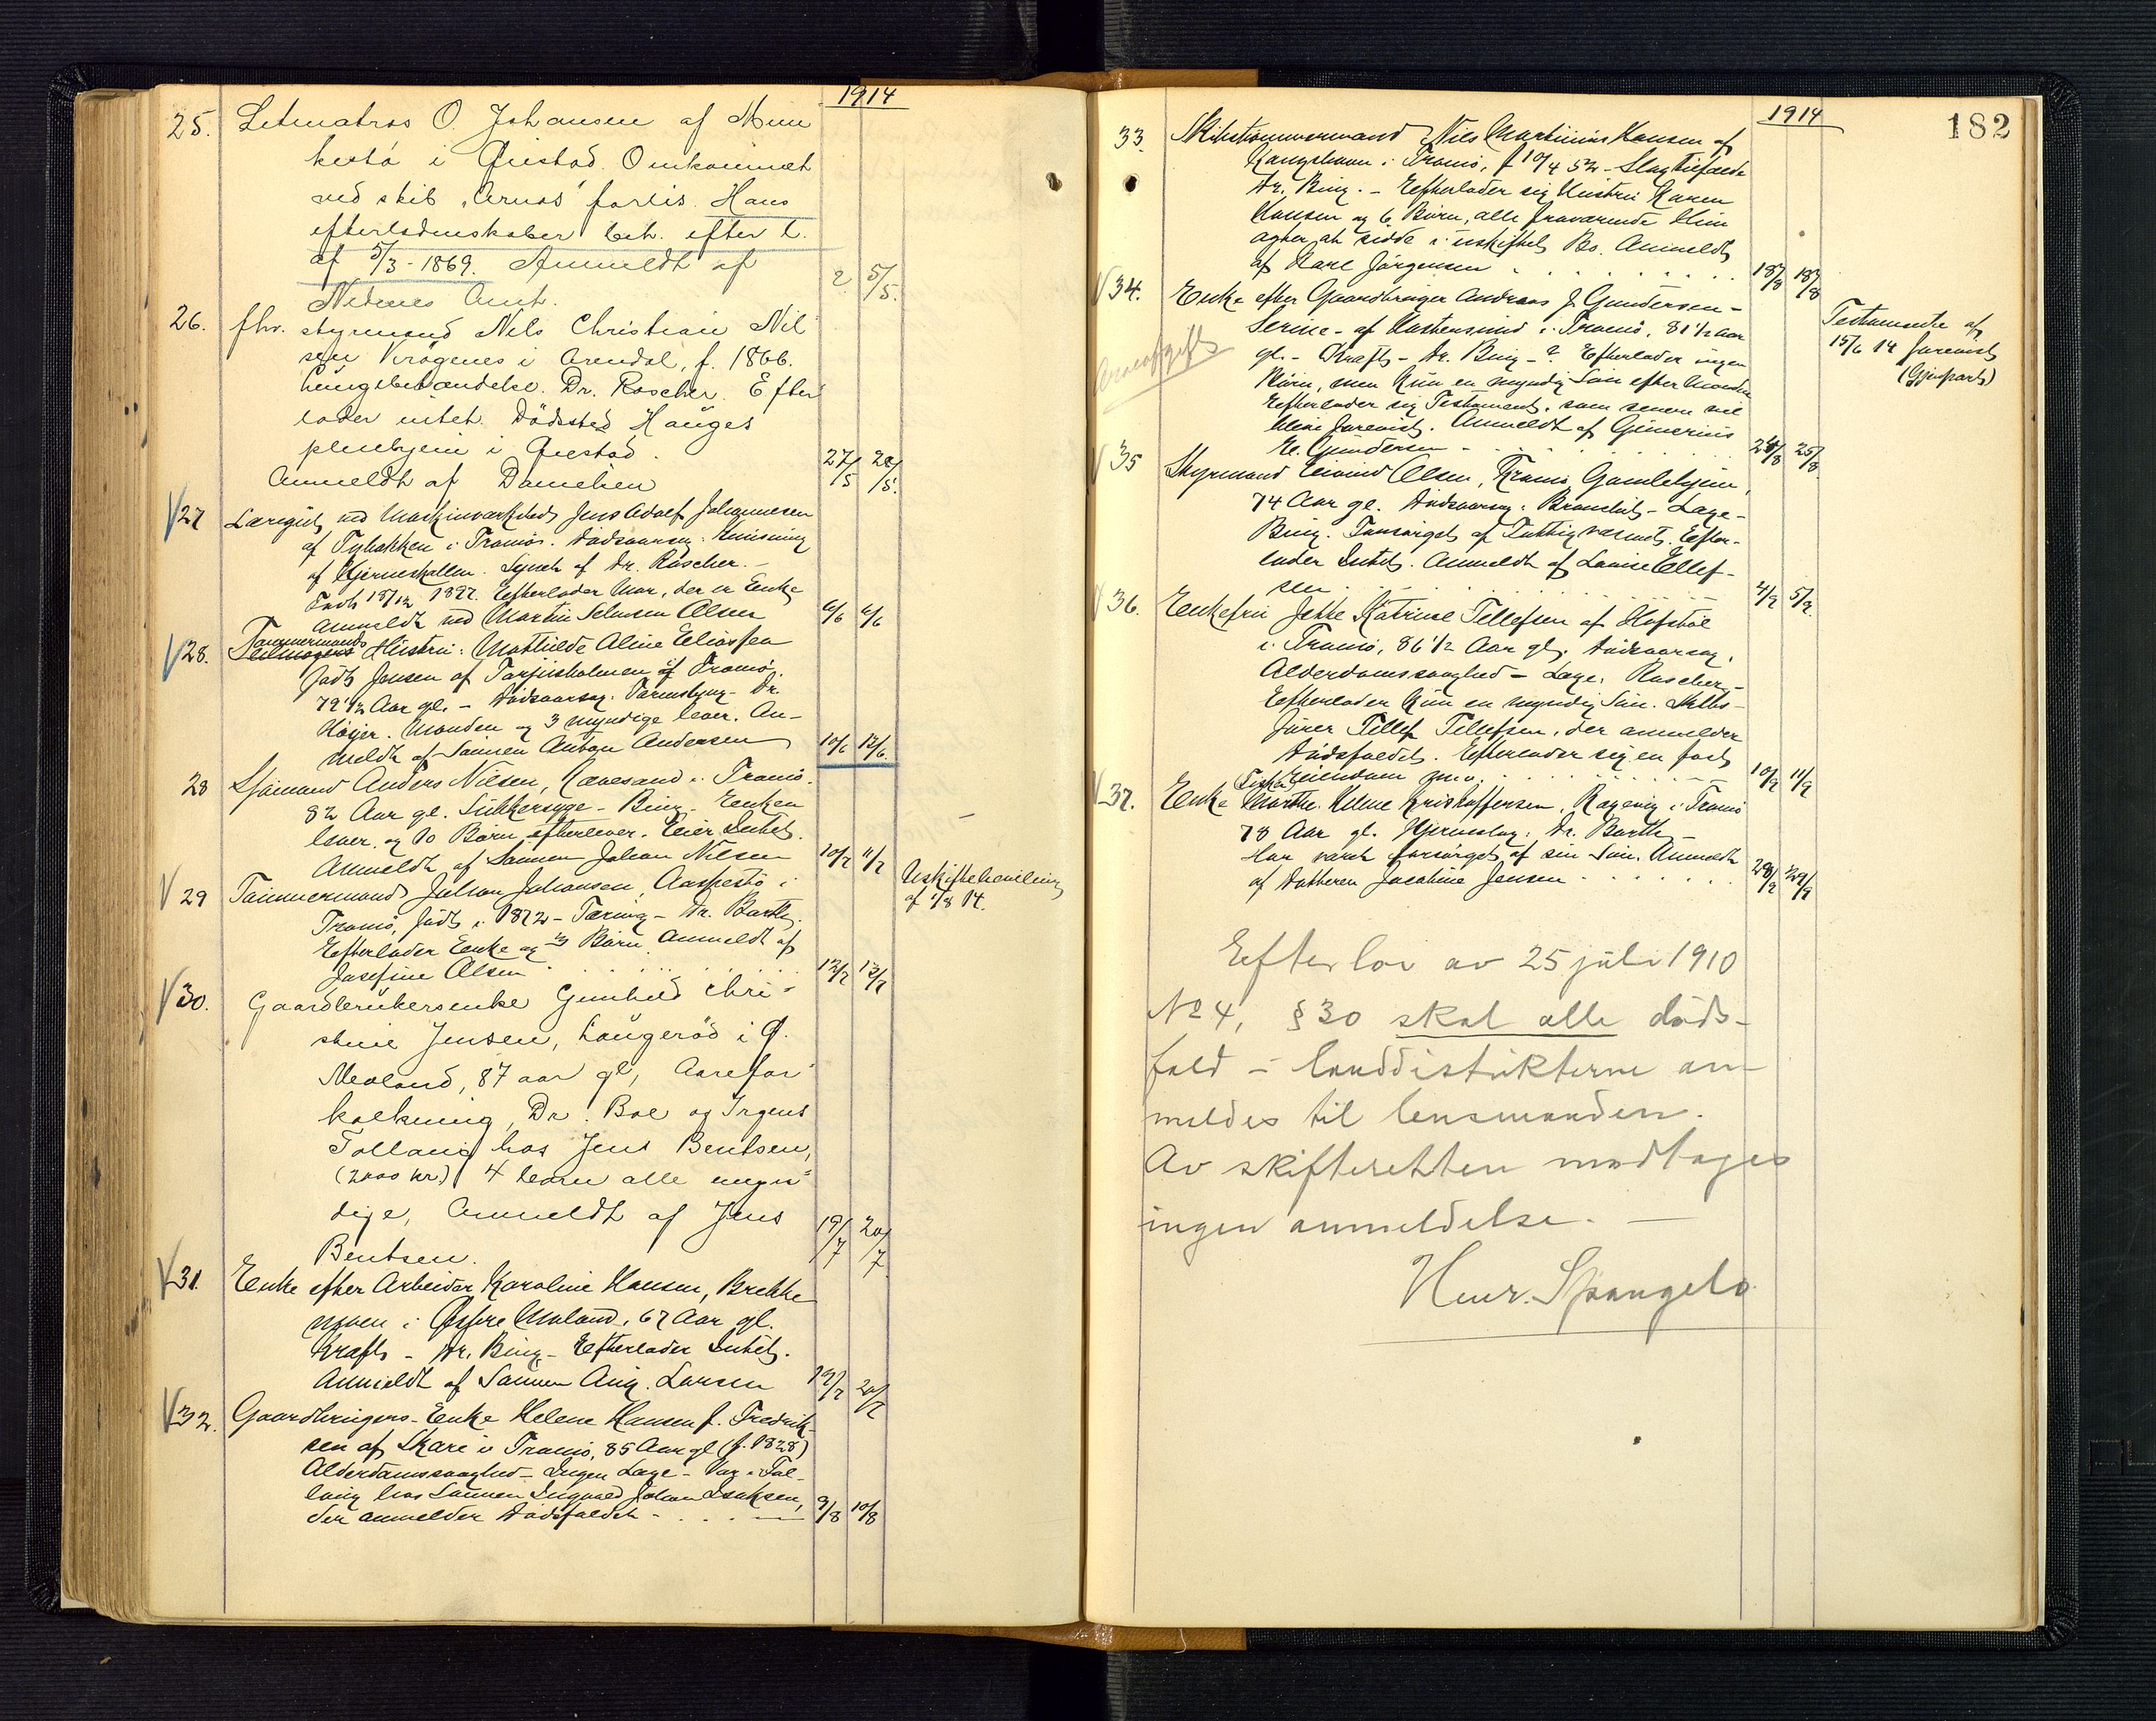 1914
25. Letmatros O. Johansen af
i Øiestad. Omkommet
ved skib "Arnas" forlis. Hans
efterladenskaber beh. efter l.
af 5/3-1869. Anmeldt af
Nedenes Amt. 2 5/5.
26. fhv. styrmand Nils Christian Nil
sen Krøgenes i Arendal, f. 1866.
Dr. Roscher. Efter
lader intet. Dødssted Høuges
pleiehjem i Øiestad.
Anmeldt af Danielsen 27/5 28/5.
V 27 Læregut ved Maskinværksted Jens Adolf Johannesen
af Tybakken i Tromø. Dødsaarsag: Knusning
af Hjerneskallen. Synet af Dr. Roscher. -
Født 18/12 1897. Efterlader Mor, der er Enke
Anmeldt ved Martin Olsen 6/6 6/6
Tømmermands
V 28. Hustru: Mathilde Aline Eliassen
født Jensen af Torjusholmen af Tromø.
79 1/2 Aar gl. - Dødsaarsag. Dr.
Høyer. Manden og 3 myndige lever. An-
meldt af Sønnen Anton Andersen 10/6 12/6.
28 Sjømand Anders Nilsen, i Tromø.
82 Aar gl. Sukkersyge - Bing - Enken
lever, og 10 Børn efterlever. Eier Intet.
Anmeldt af Sønnen Johan Nilsen 10/7 11/7
V 29 Tømmermand Julian Johansen, i
Tromø, født i 1872 - Tæring - Dr. Barth.
Efterlader Enke og 3 Børn. Anmeldt af
Josefine Olsen 12/7 13/7
Uskiftebevilling
af 1/8 14.
V 30. Gaardbrukersenke Gunhild Chri-
stine Jensen, Longerød i Ø.
Moland, 87 aar gl, Aarefor
kalkning, Dr. Boe og Irgens
Follaug hos Jens Bentsen,
(2000 kr.) 4 børn alle myn-
dige, Anmeldt af Jens
Bentsen. 19/7 20/7
V 31. Enke efter Arbeider Karoline Hansen, Brekke
moen i Østre Moland, 67 Aar gl.
Kræft - Dr. Bing - Efterlader Intet.
Anmeldt af Sønnen Aug. Larsen 19/7 20/7
V 32. Gaardbrugers-Enke Helene Hansen f. Fredrik-
sen af Skare i Tromø, 85 Aar gl (f. 1828)
Alderdomssvaghed - Ingen Læge - Var i Fol-
laug hos Sønnen Ingvald Johan Isaksen,
der anmelder Dødsfaldet - 9/8 10/8
1914
182
33. Skibstømmermand Nils Martinius Hansen af
Kongshavn i Tromø, f 10/4 52 - Slagtilfælde
Dr. Bing. - Efterlader sig Hustru Karen
Hansen og 6 Børn, alle fraværende. Hun
agter at sidde i uskiftet Bo. Anmeldt
af Karl Jørgensen 18/8 18/8
V 34. Enke efter Gaardbruger Andreas J. Gundersen -
Serine - af i Tromø, 81 1/2 aar
gl. - Kræft - Dr. Bing - ? Efterlader ingen
Børn, men kun en myndig Søn efter Manden
Efterlader sig Testament, som senere vil
blive forevist. Anmeldt af Gunerius
E. Gundersen 24/8 25/8
Arveafgift
Testamente af
15/6 14 forevist
(Gjenpart)
V 35 Styrmand Eivind Olsen, Tromø Gamlehjem,
74 Aar gl. Dødsaarsag: Bronchit - Læge -
Bing. Forsørget af Fattigvæsnet. Efter-
lader Intet. Anmeldt af Louise Ellef-
sen 4/9 5/9.
V 36. Enkefru Katrine Tellefsen af Hofstøl
i Tromø, 86 1/2 Aar gl. Dødsaarsag.
Alderdomssvaghed - Læge. Roscher -
Efterlader kun en myndig Søn. Skibs-
fører Tellef Tellefsen, der anmelder
Dødsfaldet. Efterlader sig en fast
Eiendom 10/9 11/9
V 37. Enke Marthe Helene Kristoffersen, Rægevig i Tromø
78 Aar gl. Hjerneslag: Dr. Barth -
Har været forsørget af sin Søn. Anmeldt
af Datteren Josefine Jensen 28/9 29/9
Efter lov av 25 juli 1910
No 4, § 30 skal alle døds-
fald i landdistrikterne an-
meldes til lensmanden.
Av skifteretten modtages
ingen anmeldelse. —
Henr. Spangelo